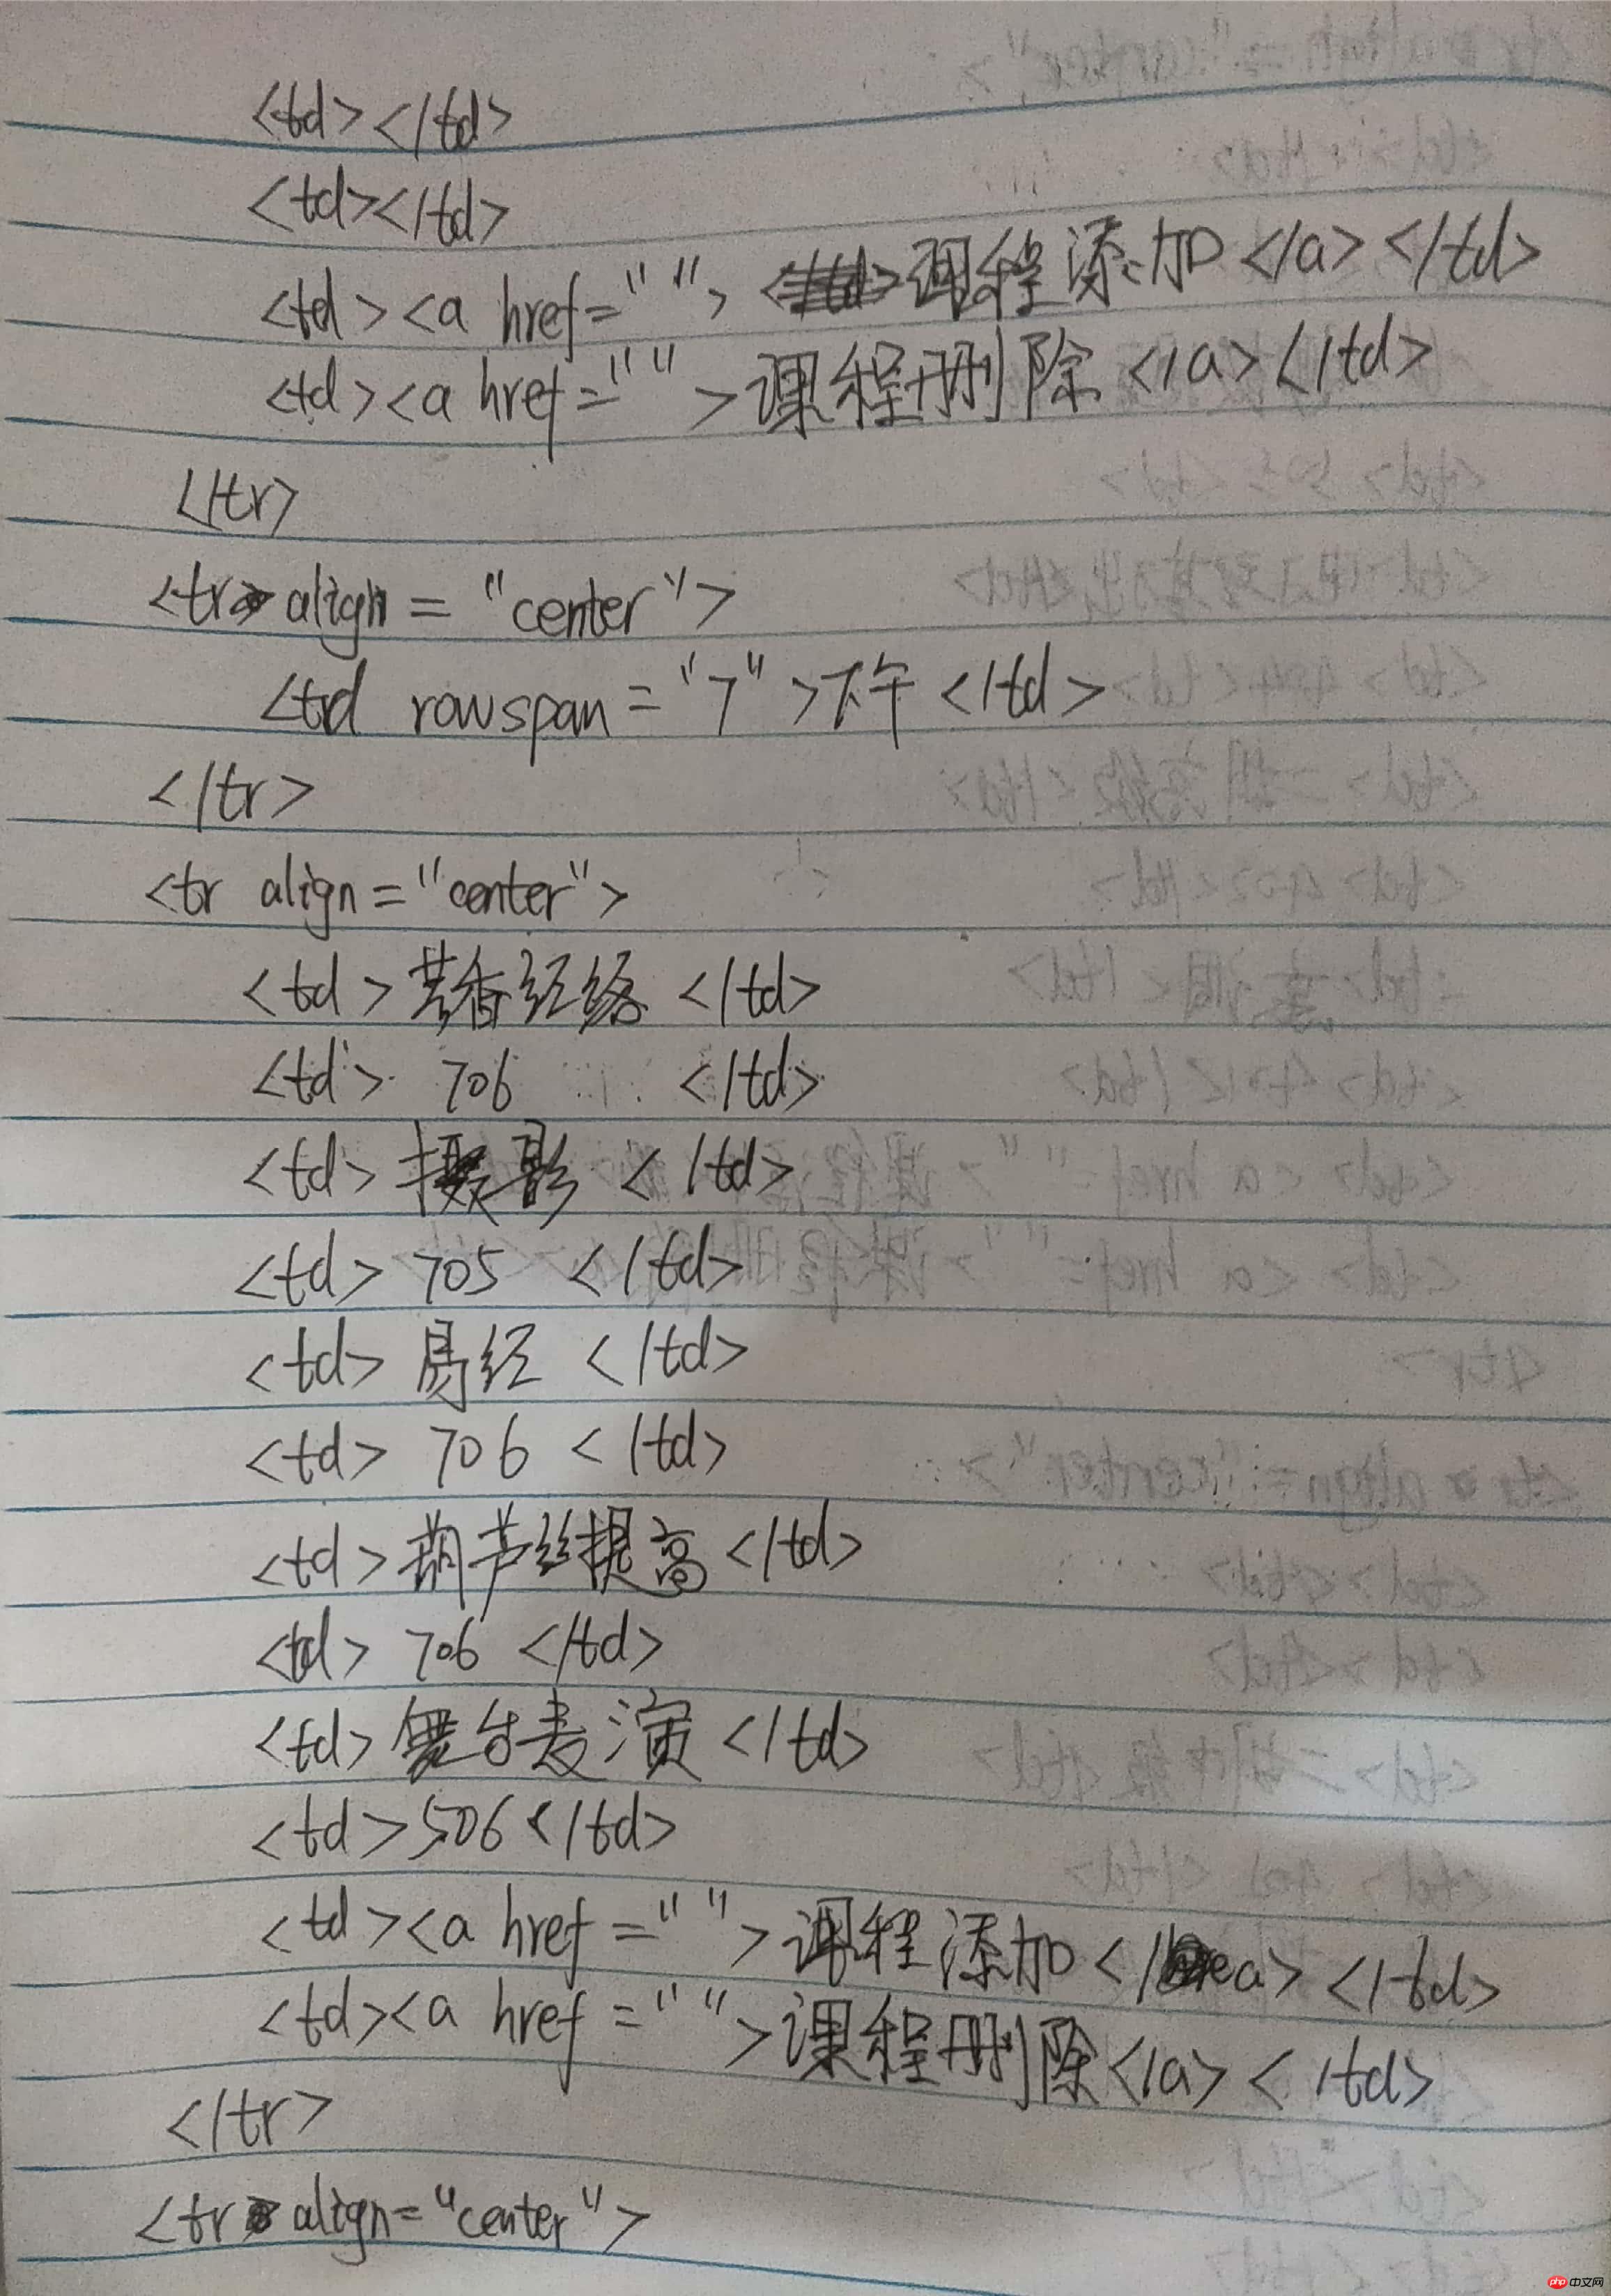 <td></td>
<td></td>
<td><a href="">课程添加</a></td>
<td><a href="">课程删除</a></td>
</tr>
<tr align="center">
<td rowspan="7">下午</td>
</tr>
<tr align="center">
<td>芳香经络</td>
<td> 706 </td>
<td>摄影</td>
<td> 705 </td>
<td>易经</td>
<td> 706 </td>
<td>葫芦丝提高</td>
<td> 706 </td>
<td>舞台表演</td>
<td>506</td>
<td><a href="">课程添加</a></td>
<td><a href="">课程删除</a></td>
</tr>
<tr align="center">
php 中文网